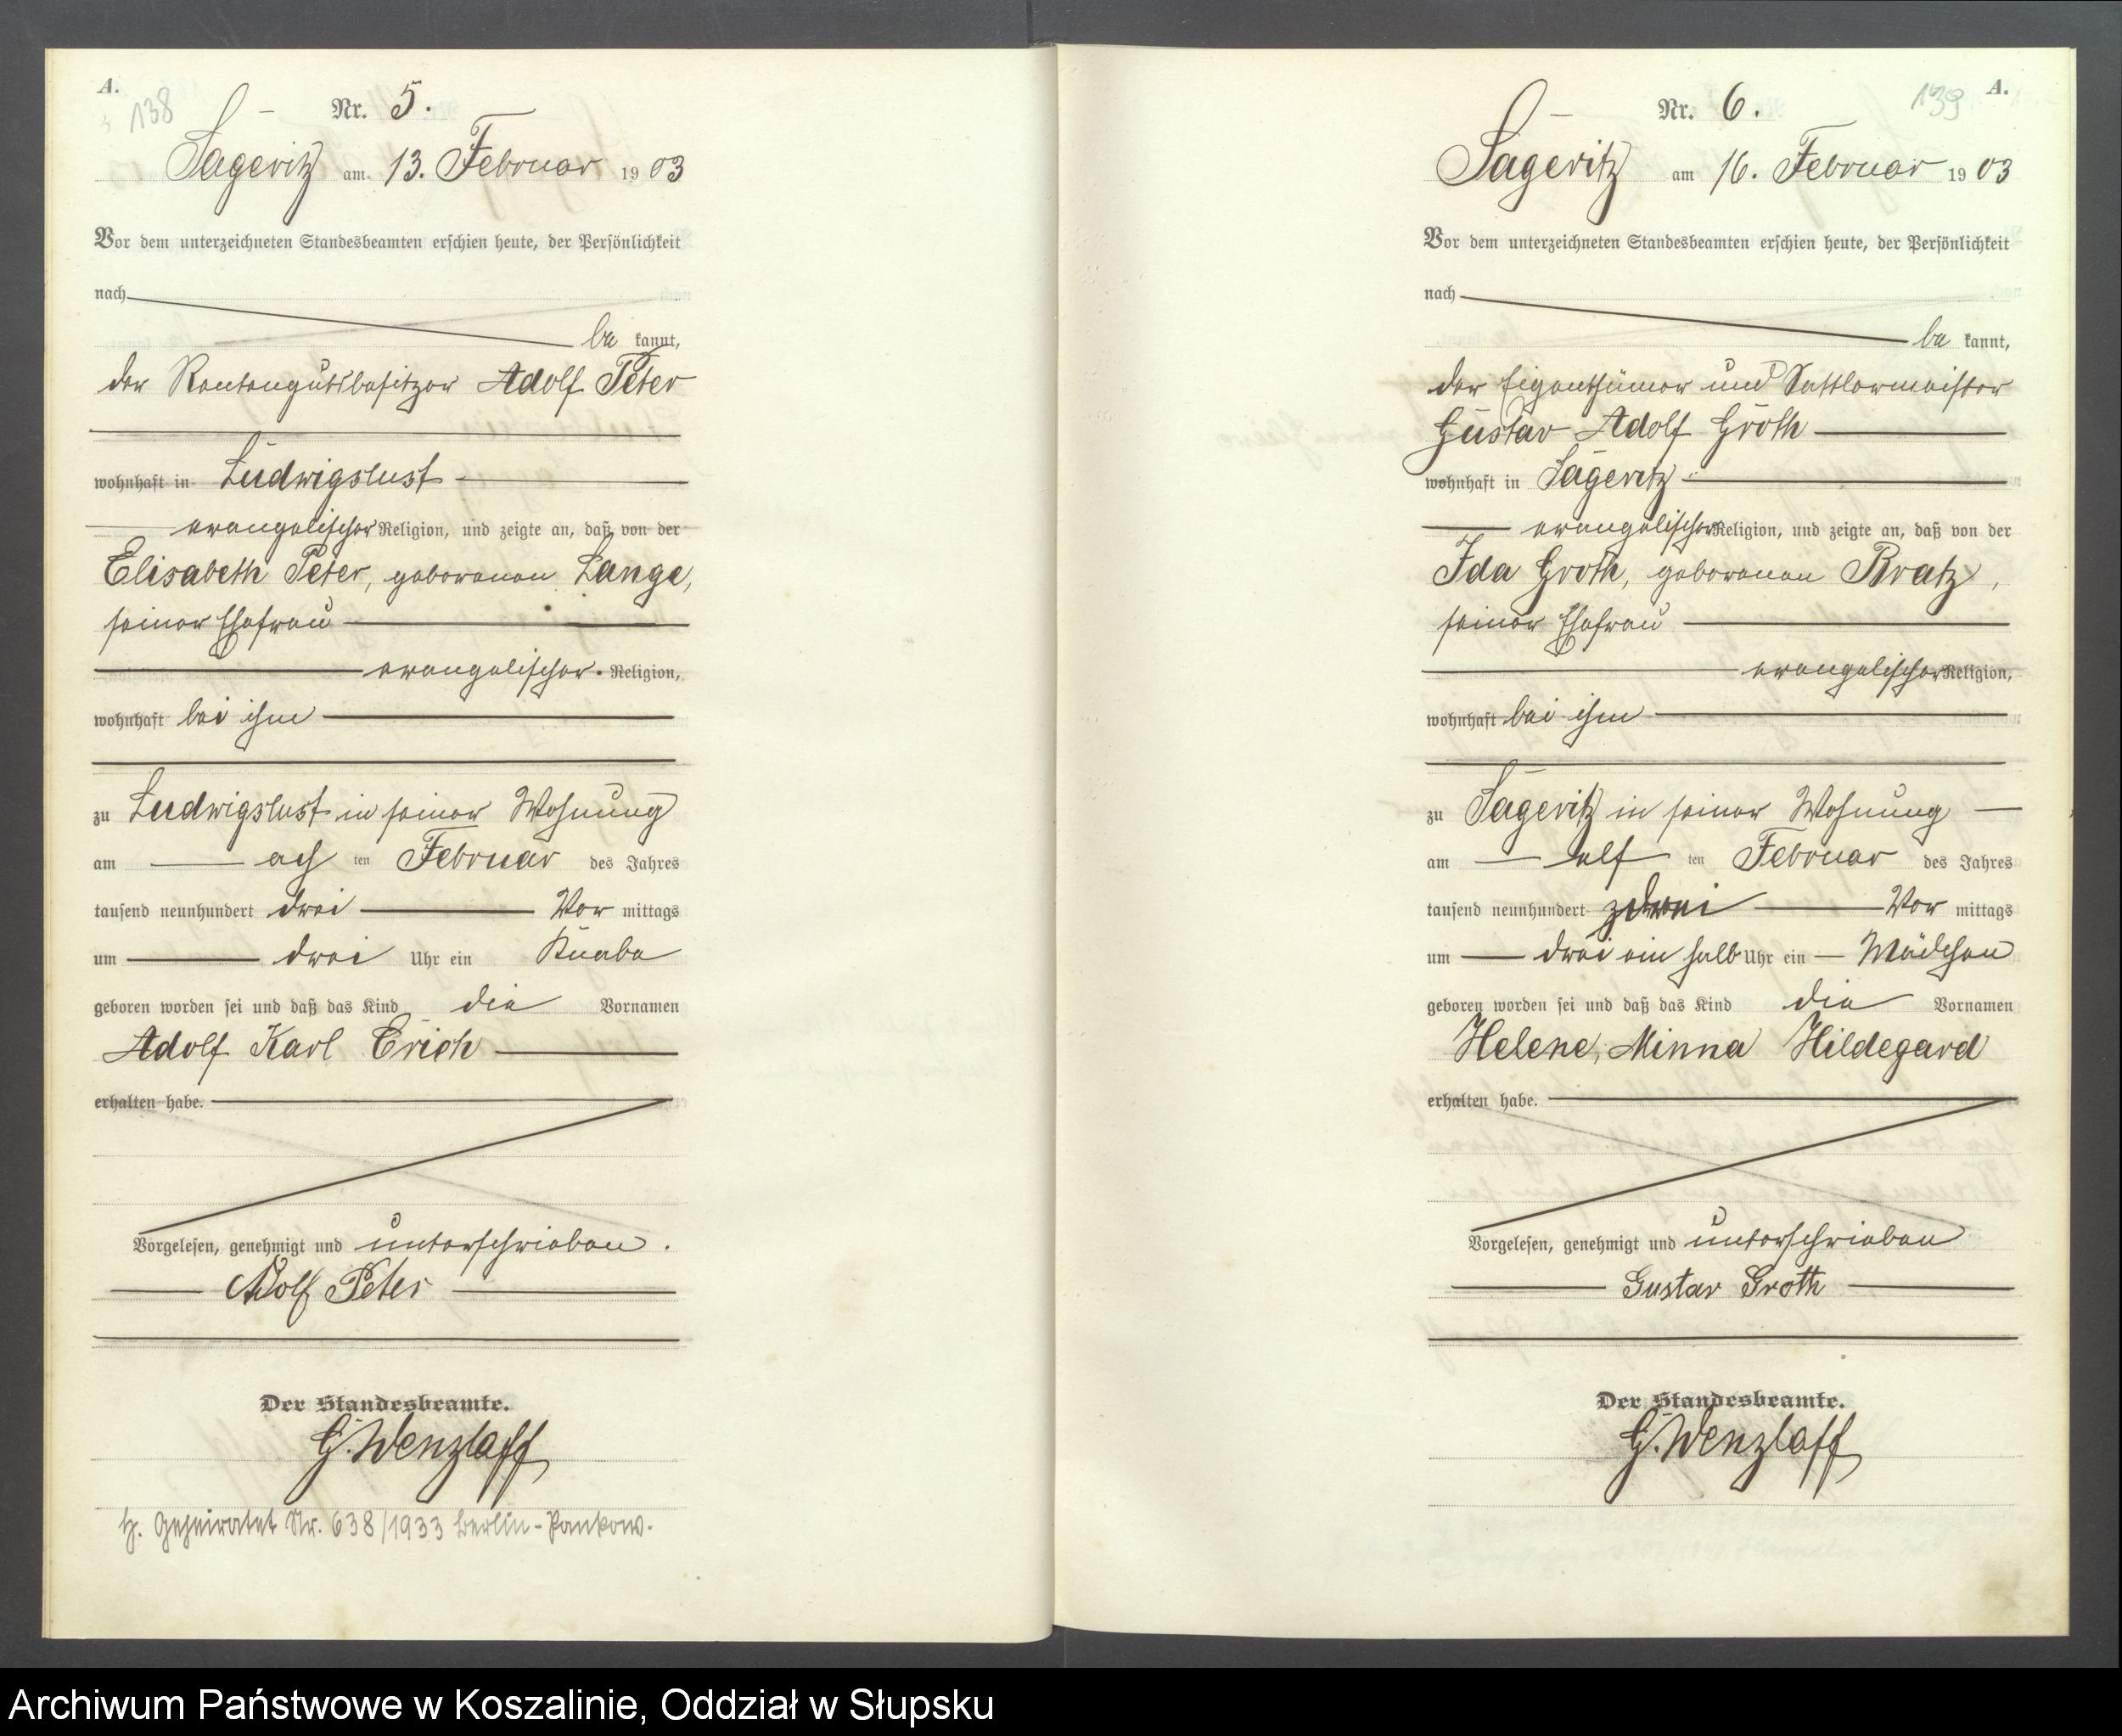 A.
138
Nr. 5.
Sageritz am 13. Februar 1903
Vor dem unterzeichneten Standesbeamten erschien heute, der Persönlichkeit
nach
be kannt,
der Rentengutsbesitzer Adolf Peter
wohnhaft in Ludwigslust
evangelischer Religion, und zeigte an, daß von der
Elisabeth Peter, geborenen Lange,
seiner Ehefrau
evangelischer Religion,
wohnhaft bei ihm
zu Ludwigslust in seiner Wohnung
am ach ten Februar des Jahres
tausend neunhundert drei Vor mittags
um drei Uhr ein Knabe
geboren worden sei und daß das Kind die Vornamen
Adolf Karl Erich
erhalten habe.
Vorgelesen, genehmigt und unterschrieben.
Adolf Peter
Der Standesbeamte.
G. Wenzlaff
H. Geheiratet Nr. 638/1933 Berlin-Pankow.
139 A.
Nr. 6.
Sageritz am 16. Februar 1903
Vor dem unterzeichneten Standesbeamten erschien heute, der Persönlichkeit
nach
be kannt,
der Eigenthümer und Sattlermeister
Gustav Adolf Groth
wohnhaft in Sageritz
evangelischer Religion, und zeigte an, daß von der
Ida Groth, geborenen Bratz,
seiner Ehefrau
evangelischer Religion,
wohnhaft bei ihm
zu Sageritz in seiner Wohnung
am elf ten Februar des Jahres
tausend neunhundert Vor mittags
um drei ein halb Uhr ein Mädchen
geboren worden sei und daß das Kind die Vornamen
Helene, Minna Hildegard
erhalten habe.
Vorgelesen, genehmigt und unterschrieben
Gustav Groth
Der Standesbeamte.
G. Wenzlaff
Archiwum Państwowe w Koszalinie, Oddział w Słupsku